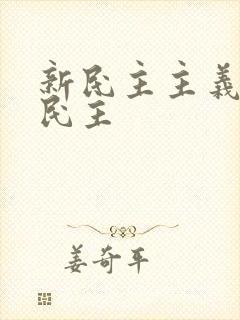 新民主主義
民主
姜奇平